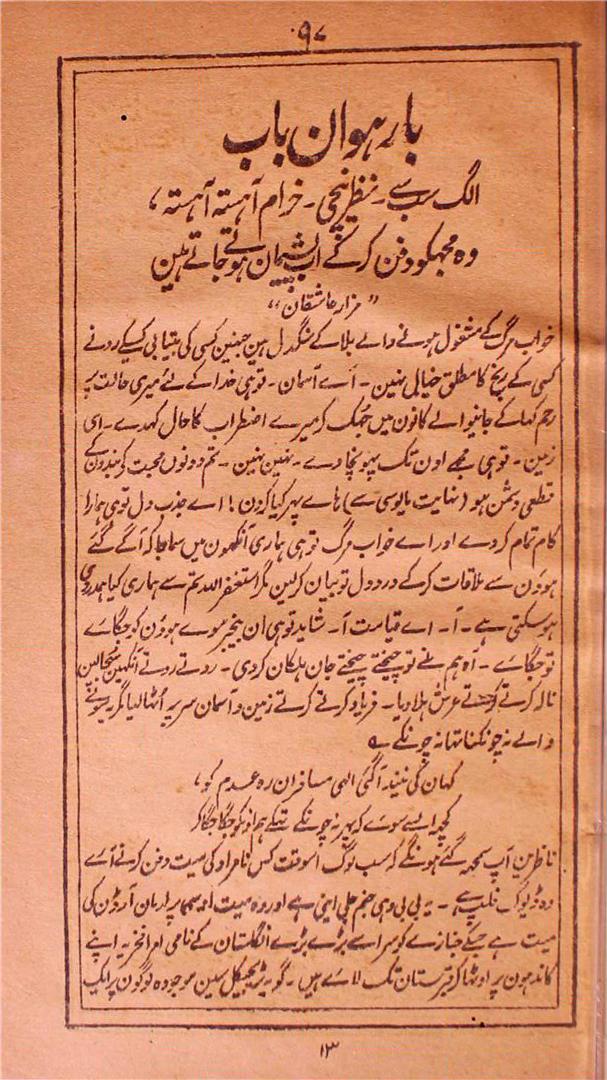 ۹۷
بارہوان باب
الگ سب سے ۔ نظر نیچی ۔ خرام آہستہ آہستہ ،
وہ مجہکو دفن کرکے اب پشیمان ہوتے جاتے ہین
"مزار عاشقان"
خواب مرگ کے مشغول ہونے والے بلا کے سنگدل ہین جنہین کسی کی بیتابی کسیکے رونے
کسی کے رنج کا مطلق خیال نہین ۔ اے آسمان ۔ تو ہی خدا کے لئے میری حالت پہ
رحم کہا کے جانیوالے کانون مین جُہک کر میرے اضطراب کا حال کہدے ۔ ای
زمین ۔ تو ہی مجہے اون تک پہونچا دے ۔ نہین نہین ۔ تم دونون محبت کے بندون کے
قطعی دشمن ہو (نہایت مایوسی سے) ہاے پہر کیا کرون! اے جذب دل تو ہی ہمارا
کام تمام کردے اور اے خواب مرگ تو ہی ہماری آنکہون مین سما جا کہ آگے گئے
ہوؤن سے ملاقات کرکے درد دل تو بیان کرلین مگر استغفراللہ تم سے ہماری کیا ہمدردی
ہوسکتی ہے ۔ آ ۔ اے قیامت آ ۔ شاید تو ہی ان بیخبر سوے ہوؤن کو جگاے
تو جگاے ۔ آہ ہم نے تو چیختے چیختے جان ہلکان کردی ۔ روتے روتے آنکہین سُجالین
نالہ کرتے کرتے عرش ہلا دیا ۔ فریاد کرتے کرتے زمین و آسمان سر پر اُٹہا لیا مگر یہ سونے
والے نہ چونکنا تہا نہ چونکے ؎
کہان کی نیند آگئی الٰہی مسافران رہ عدم کو ،
کچہ ایسے سوے کہ پہر نہ چونکے تہکے ہم اونکو جگا جگا کر
ناظرین آپ سمجہ گئے ہونگے کہ سب لوگ اسوقت کس نامراد کی میت دفن کرنے آے
وہ ڈیوک فلپ ہے ۔ یہ بی بی وہی غم جلی ایمی ہے اور وہ میت اوسہی پر ارمان آرڈن کی
میت ہے جسکے جنازے کو سراے بڑے بڑے انگلستان کے نامی امرا فخریہ اپنے
کاندہون پر اوٹہا کر قبرستان تک لاے ہین ۔ گو یہ ٹریجیکل سین موجودہ لوگون پر ایک
۱۳